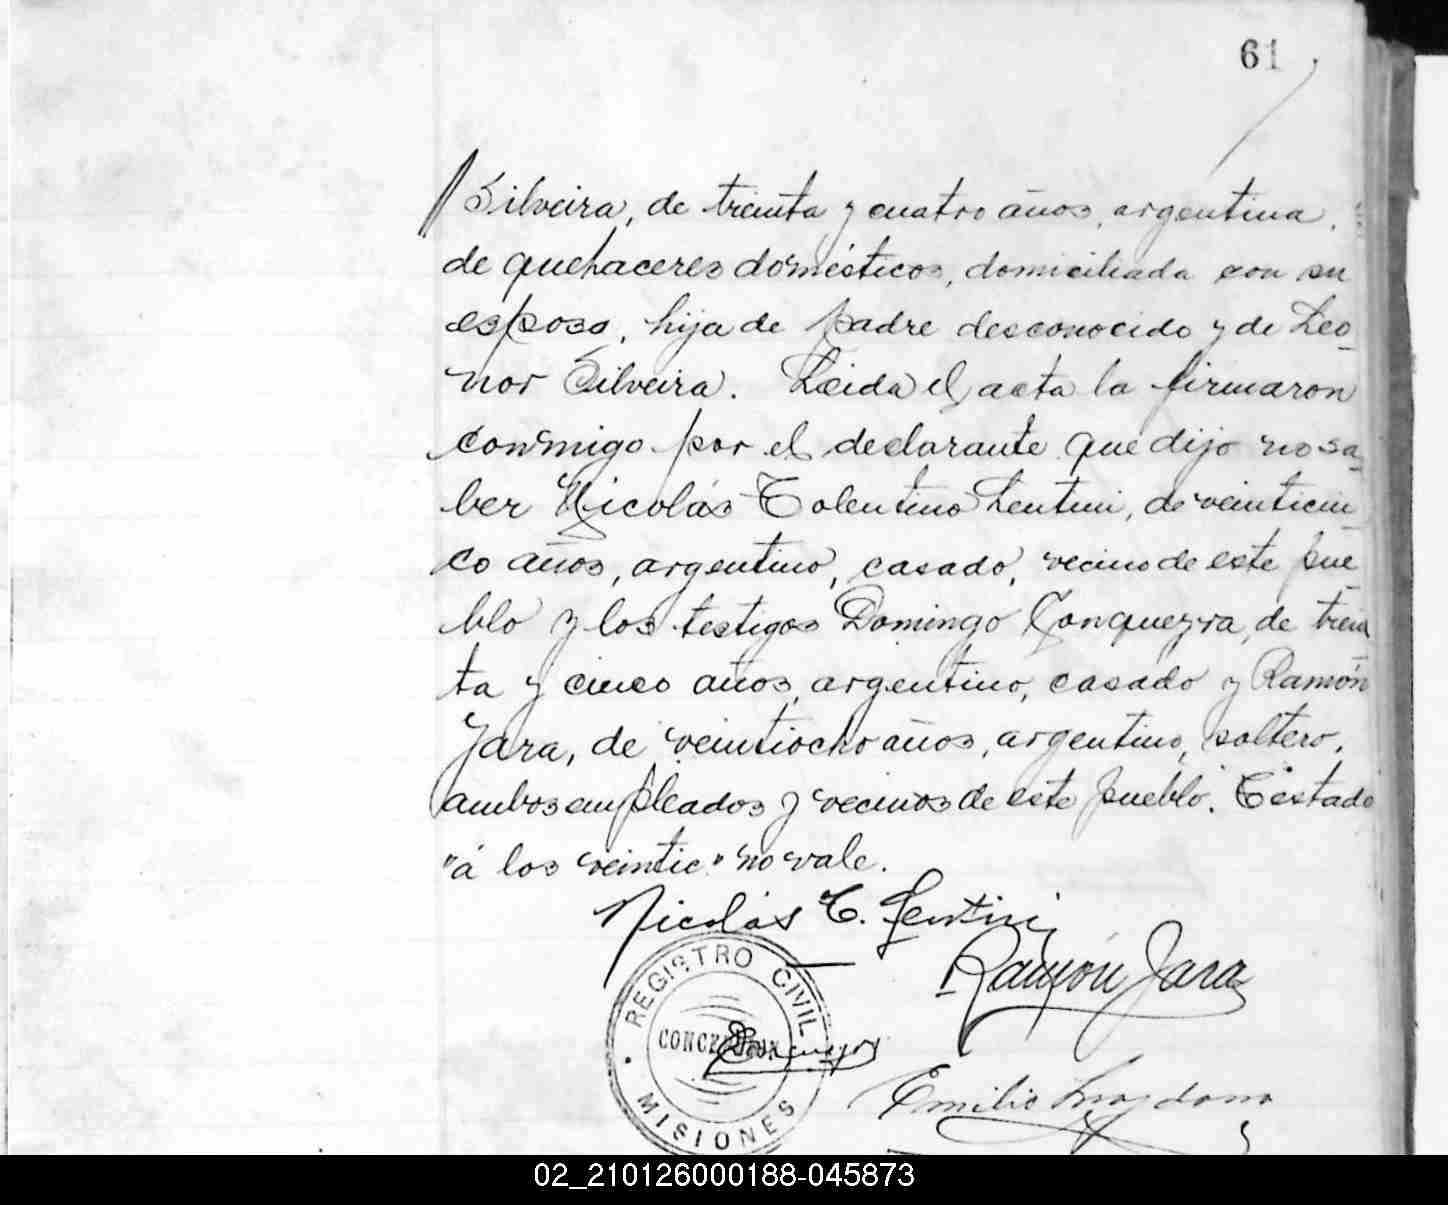 61
Silveira, de treinta y cuatro años, argentina,
de quehaceres domésticos, domiciliada con su
esposo, hija de padre desconocido y de Leo-
nor Silveira. Leida el acta la firmaron
conmigo por el declarante que dijo no sa-
ber Nicolás Tolentino Lentini, de veinticin-
co años, argentino, casado, vecino de este pue-
blo y los testigos Domingo Conqueyra, de trein-
ta y cinco años, argentino, casado y Ramón
Jara, de veintiocho años, argentino, soltero,
ambos empleados y vecinos de este pueblo. Testado
"á los veintic" no vale.
Nicolás T. Lentini
Ramón Jara
REGISTRO CIVIL
CONCEPCION
MISIONES
Emilio
02_210126000188-045873